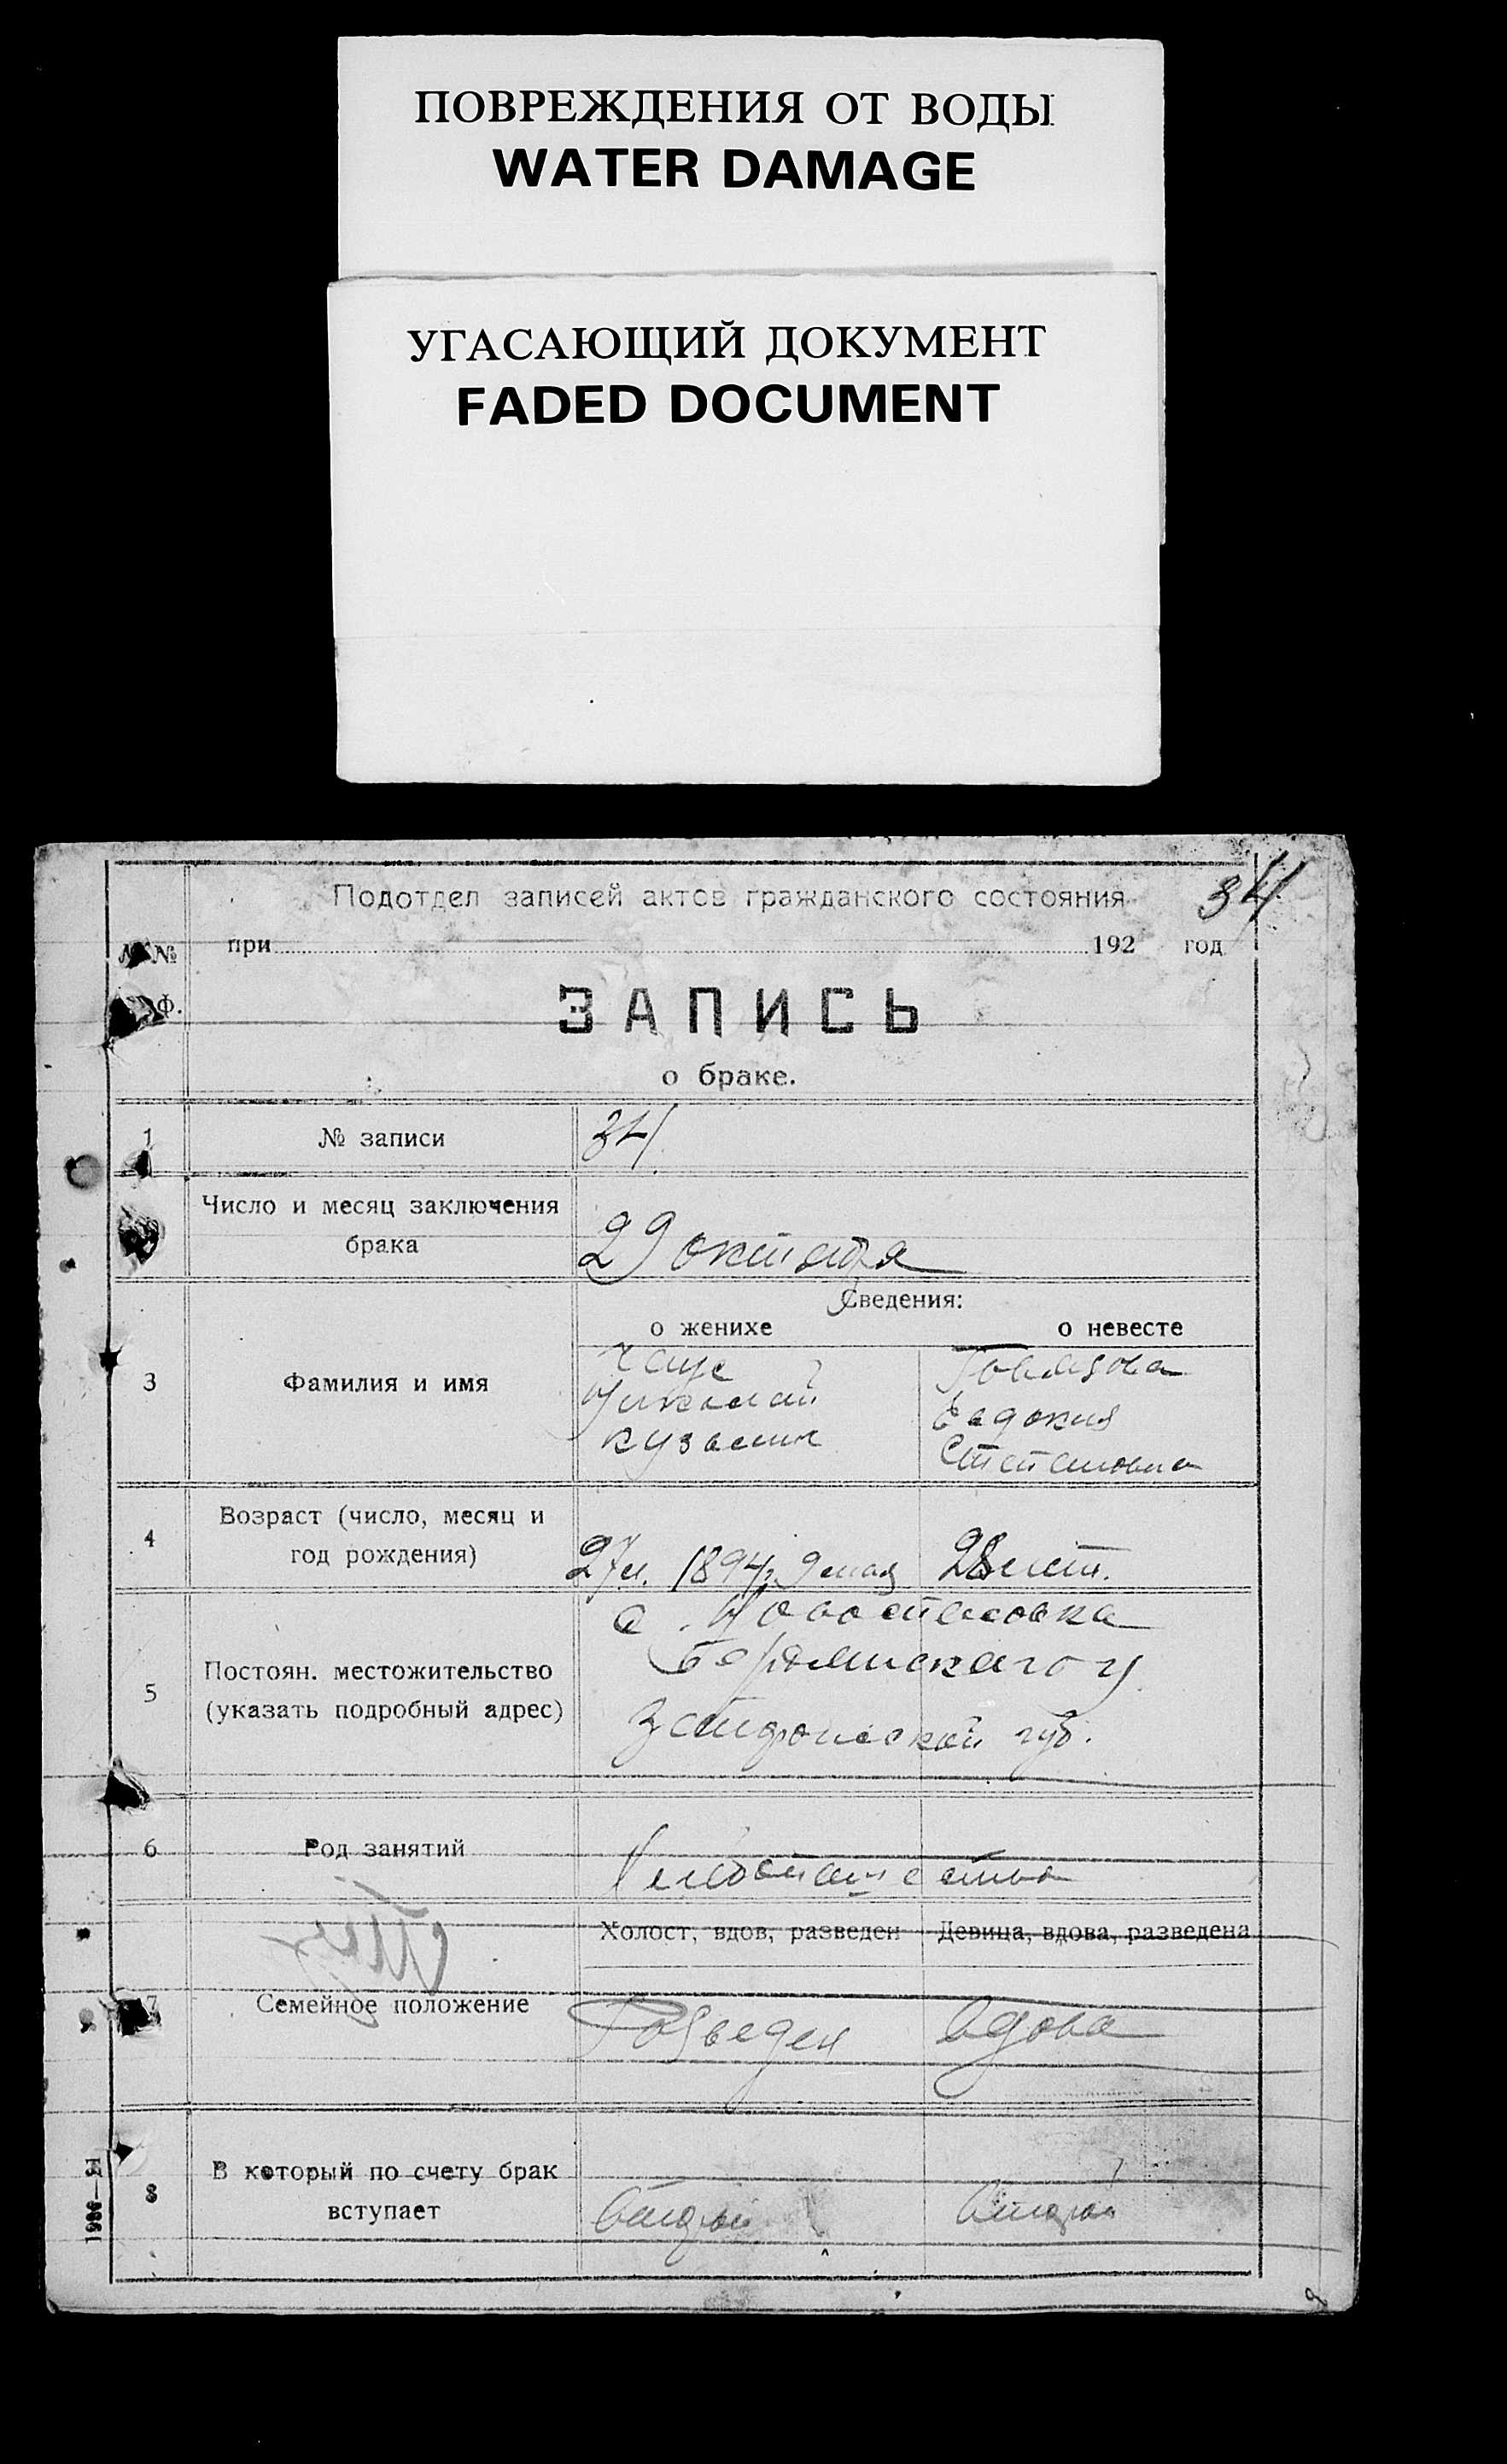 ПОВРЕЖДЕНИЯ ОТ ВОДЫ
WATER DAMAGE
УГАСАЮЩИЙ ДОКУМЕНТ
FADED DOCUMENT
Подотдел записей актов гражданского состояния
34
№ при 192 год
Ф.
ЗАПИСЬ
о браке.
1 № записи 34
Число и месяц заключения
брака 29 октября
Сведения:
о женихе о невесте
3 Фамилия и имя
Николай Евдокия
Кузьмич Степановна
4 Возраст (число, месяц и
год рождения) 27 л. 1894 г. 9 мая 28 лет.
с. Новоспасовка
5 Постоян. местожительство Бердянскаго у
(указать подробный адрес)
губ.
6 Род занятий Хлебопашество
Холост, вдов, разведен Девица, вдова, разведена
7 Семейное положение Разведен вдова
8 В который по счету брак
вступает Второй Второй